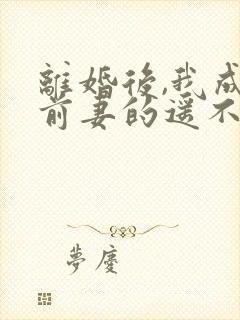 離婚後,我成
前妻的遥不
夢慶